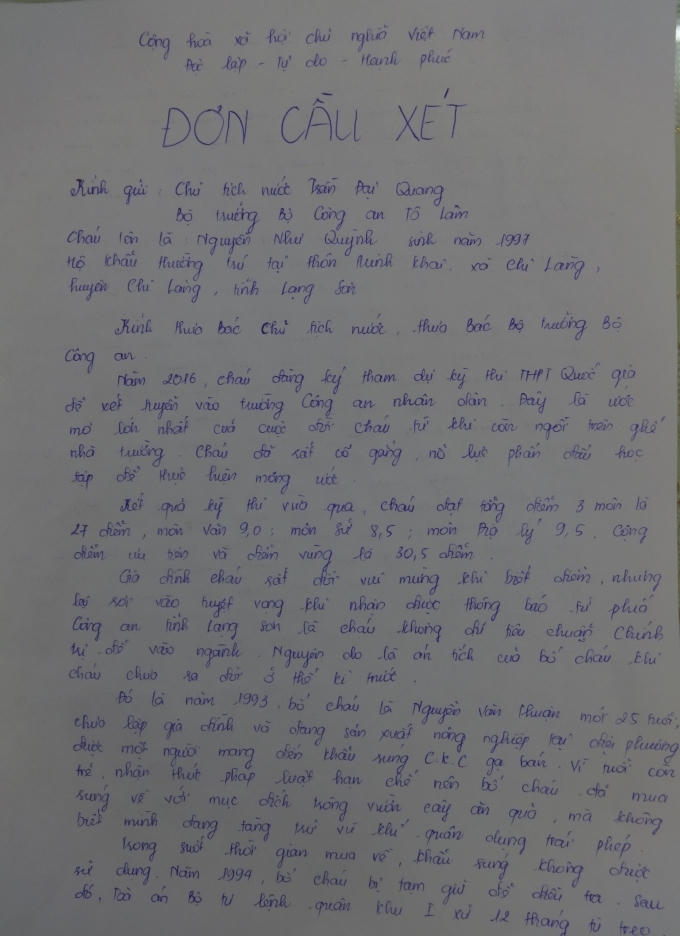 Cộng hoà xã hội chủ nghĩa Việt Nam
Độc lập - Tự do - Hạnh phúc
ĐƠN CẦU XÉT
Kính gửi : Chủ tịch nước Trần Đại Quang
Bộ trưởng Bộ Công an Tô Lâm
Cháu tên là : Nguyễn Như Quỳnh sinh năm 1997
Hộ khẩu thường trú tại thôn Minh Khai, xã Chi Lăng,
huyện Chi Lăng, tỉnh Lạng Sơn
Kính thưa Bác Chủ tịch nước, thưa Bác Bộ trưởng Bộ
Công an.
Năm 2016, cháu đăng ký tham dự kỳ thi THPT Quốc gia
để xét tuyển vào trường Công an nhân dân. Đây là ước
mơ lớn nhất của cuộc đời cháu từ khi còn ngồi trên ghế
nhà trường. Cháu đã rất cố gắng, nỗ lực phấn đấu học
tập để thực hiện mong ước.
Kết quả kỳ thi vừa qua, cháu đạt tổng điểm 3 môn là
27 điểm, môn văn 9,0 ; môn Sử 8,5 ; môn Địa lý 9,5. Cộng
điểm ưu tiên và điểm vùng là 30,5 điểm.
Gia đình cháu rất đỗi vui mừng khi biết điểm, nhưng
lại rơi vào tuyệt vọng khi nhận được thông báo từ phía
Công an tỉnh Lạng Sơn là cháu không đủ tiêu chuẩn Chính
trị để vào ngành. Nguyên do là án tích của bố cháu khi
cháu chưa ra đời ở thế kỉ trước.
Đó là năm 1993, bố cháu là Nguyễn Văn Thuận mới 25 tuổi,
chưa lập gia đình và đang sản xuất nông nghiệp tại địa phương
được một người mang đến khẩu súng C.K.C gạ bán. Vì tuổi còn
trẻ, nhận thức pháp luật hạn chế nên bố cháu đã mua
súng về với mục đích trông vườn cây ăn quả, mà không
biết mình đang tàng trữ vũ khí quân dụng trái phép.
Trong suốt thời gian mua về, khẩu súng không được
sử dụng. Năm 1994, bố cháu bị tạm giữ để điều tra. Sau
đó, Toà án Bộ tư lệnh quân khu I xử 12 tháng tù treo.